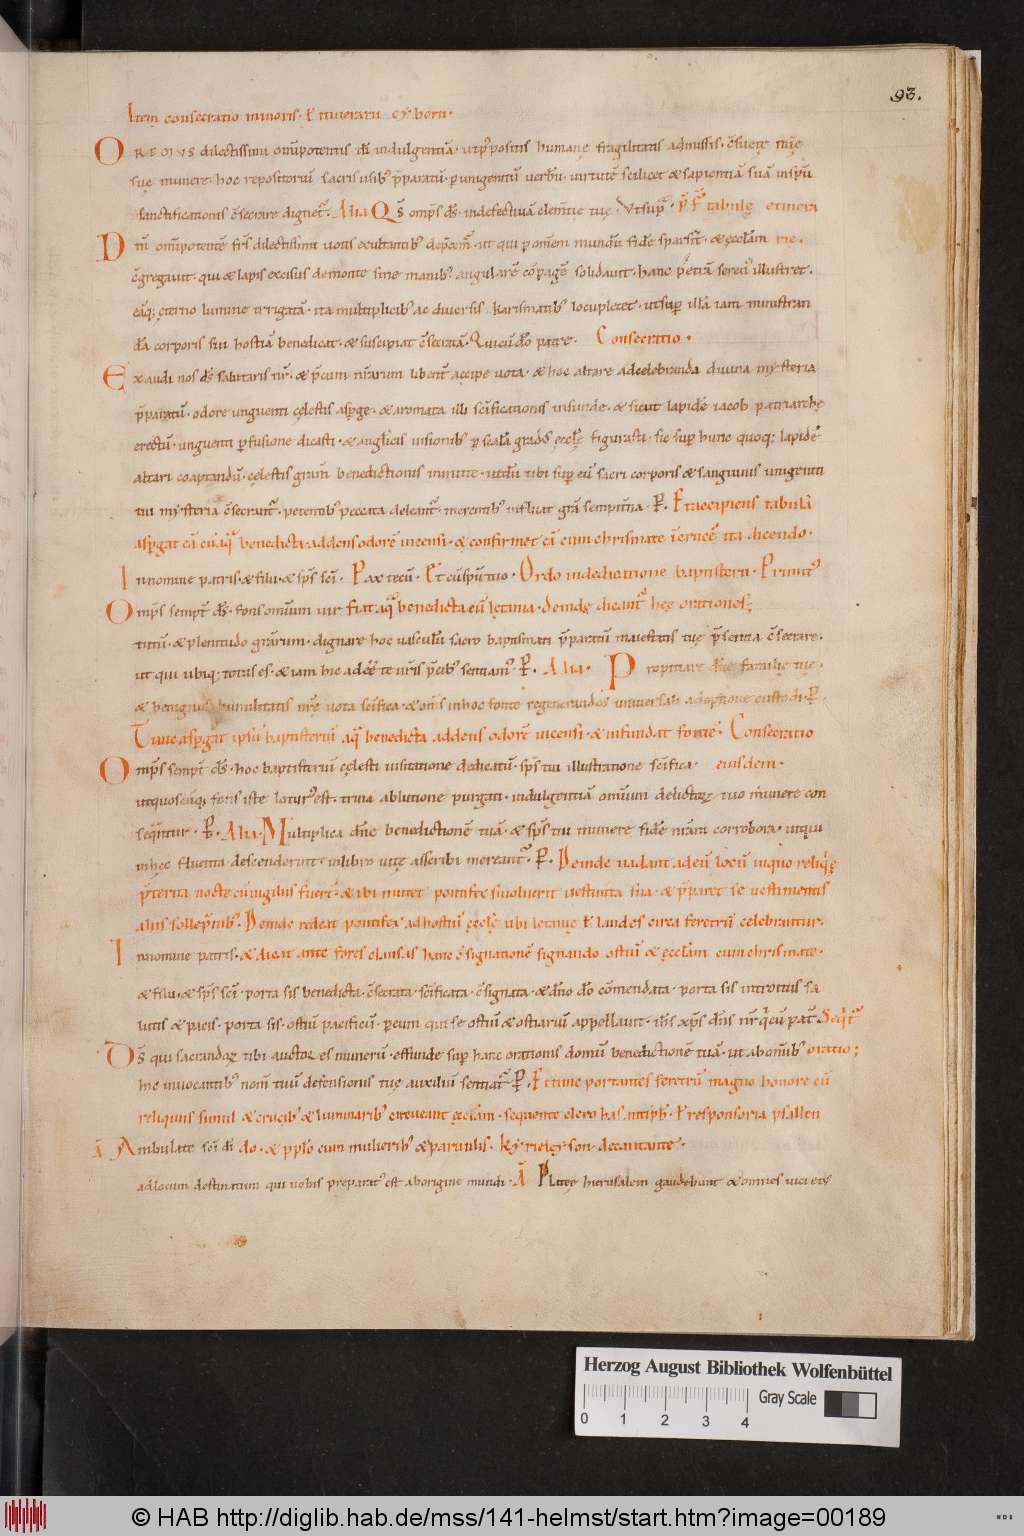 93.
Item consecratio minoris. ł itinerarii cyborii.
OREMUS dilectissimi omīpotentis dī indulgentiā. ut ꝓpositis humanę fragilitatis admissis. c̄suetę suę
suę munere. hoc repositoriū sacris usib; p̄paratū. ꝑ unigenitū uerbū. uirtutē scilicet & sapientiā suā inspū
sanctificationis c̄secrare dignet͛. Alia Q̄s omp̄s ds̄. indefectiuā clem̄tię tuę. Vt sup͛. p̄ tabulę itinera
Dm̄ omīpotentē fr̄s dilectissimi uotis exultantib; dep̄cem͛. ut qui ꝑ omēm mundū fidē sparsit. & ęcclām rię.
c̄gregauit. qui & lapis excisus de monte sine manib; angularē cōpagē solidauit. hanc petrā seren͛ illustret.
eāq; ęterno lumine irrigatā. ita multiplicib; ac diuersis karismatib; locupletet. ut sup illā iam ministran
da corporis sui hostiā benedicat. & suscipiat c̄secratā. Qui cū dō patre. Consecratio.
Exaudi nos ds̄ salutaris nr̄. & p̄cum nr̄arum libent͛ accipe uota. & hoc altare ad celebranda diuina mysteria
p̄paratū. odore unguenti cęlestis asp̄ge. & aromata illi sc̄ificationis infunde. & sicut lapidē iacob patriarchę
erectū. unguenti ꝑfusione dicasti. & anglicis uisionib; ꝑ scalā gradꝰ ęcclę figurasti. sic sup hunc quoq; lapidē
altari coaptandū. cęlestis gratiā benedictionis inmitte. ut dū tibi sup eū sacri corporis & sanguinis unigeniti
tui mysteria c̄secrant͛. petentib; peccata deleant͛. merentib; influat gr̄a sempit̄na. P̱. Et accipiens tabulā
asp̄gat eā cū aq͛ benedicta. addens odorē incensi. & confirmet eā cum chrismate ī crucē ita dicendo.
In nomine patris. & filii. & sp̄s sc̄i. Pax tecū. Et cū spū tuo. Ordo in dedicatione baptisterii. Primit͛
Omp̄s semp̄t ds̄. fons omium uir fiat aq͛ benedicta cū lętania. deindę dicant͛ hęc orationes.
tutū. & plenitudo gr̄arum. dignare hoc uasculū sacro baptismati p̄paratū maiestatis tuę p̄sentia c̄secrare.
ut qui ubiq; totus es. & iam hic adeē te nr̄is p̄cib; sentiam͛. P̱. Alia. Propitiare dn̄e familię tuę.
& benignus humilitatis nr̄ę uota sc̄ifica. & om̄s in hoc fonte regenerandos uniuersali adoptione custodi. P̱.
Tunc asp̄gat ipsū baptisteriū aq͛ benedicta addens odorē incensi. & infundat fonte. Consecratio
Omp̄s semp̄t ds̄. hoc baptisteriū cęlesti uisitatione dedicatū. sp̄s tui illustratione sc̄ifica. eiusdem.
ut quoscūq; fons iste loturꝰ est. trina ablutione purgati. indulgentiā omium delictoꝝ tuo munere con
sequant͛. P̱. Alia. Multiplica dn̄e benedictionē tuā. & sp̄s tui munere fidē nr̄am corrobora. ut qui
in hęc fluenta descenderint. in libro uitę asscribi mereant͛. P̱. Deinde uadant ad eū locū in quo reliq̄ę
p̄terita nocte cū uigiliis fuer͛. & ibi mutet pontifex si uoluerit uestimta sua. & p̄paret se uestimentis
aliis sollēpnib;. Deinde redeat pontifex ad hostiū ęcclę ubi lętanię ł laudes circa feretrū celebrantur.
In nomine patris. & dicat ante fores clausas hanc c̄signationē signando ostiū & ęcclām cum chrismate.
& filii. & sp̄s sc̄i. porta sis benedicta. c̄secrata. sc̄ificata. c̄signata. & dn̄o dō cōmendata. porta sis introitus sa
lutis & pacis. porta sis. ostiū pacificū. ꝑ eum qui se ostiū & ostiariū appellauit. ih̄s xp̄s dn̄s nr̄ q̄ cū pat͛. Seq̄t͛
Ds̄ qui sacrandoꝝ tibi auctor es munerū. effunde sup hanc orationis domū benedictionē tuā. ut ab omīb; oratio;
hic inuocantib; nom̄ tuū defensionis tuę auxiliū sentiat͛. P̱. Et tunc portantes feretrū magno honore cū
reliquiis simul & crucib; & luminarib; circueant ęcclām. sequente clero has antiph̄. ł responsoria psallen
ā Ambulate sc̄i dī do. & pplo cum mulierib; & paruulis. kyrieleyson decantante.
ad locum destinatum qui uobis pręparat͛ est ab origine mundi. Ā Plateę hierusalem gaudebunt & omnes uici eis
Herzog August Bibliothek Wolfenbüttel
Gray Scale
0 1 2 3 4
© HAB http://diglib.hab.de/mss/141-helmst/start.htm?image=00189